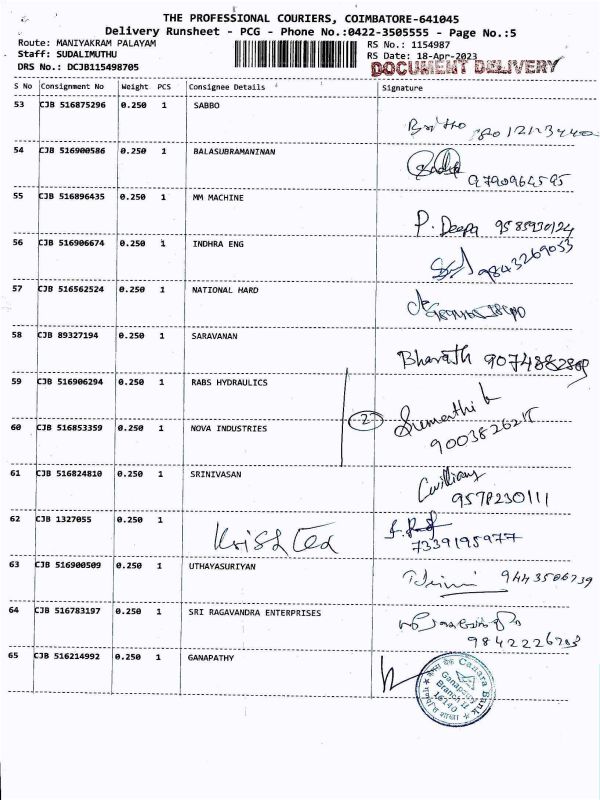 THE PROFESSIONAL COURIERS, COIMBATORE-641045
Delivery Runsheet - PCG - Phone No.:0422-3505555 - Page No.:5
Route: MANIYAKRAM PALAYAM
RS No.: 1154987
Staff: SUDALIMUTHU
RS Date: 18-Apr-2023
DRS No.: DCJB115498705
DOCUMENT DELIVERY
S No Consignment No Weight PCS Consignee Details Signature
53 CJB 516875296 0.250 1 SABBO
54 CJB 516900586 0.250 1 BALASUBRAMANINAN
9790964595
55 CJB 516896435 0.250 1 MM MACHINE
P. Deepa 9585930124
56 CJB 516906674 0.250 1 INDHRA ENG
9843269033
57 CJB 516562524 0.250 1 NATIONAL HARD
58 CJB 89327194 0.250 1 SARAVANAN
Bharath
59 CJB 516906294 0.250 1 RABS HYDRAULICS
2 Sumathi
60 CJB 516853359 0.250 1 NOVA INDUSTRIES
61 CJB 516824810 0.250 1 SRINIVASAN
9578230111
62 CJB 1327055 0.250 1
7339195977
63 CJB 516900509 0.250 1 UTHAYASURIYAN
64 CJB 516783197 0.250 1 SRI RAGAVANDRA ENTERPRISES
65 CJB 516214992 0.250 1 GANAPATHY
Canara Bank
Ganapathy
Branch II